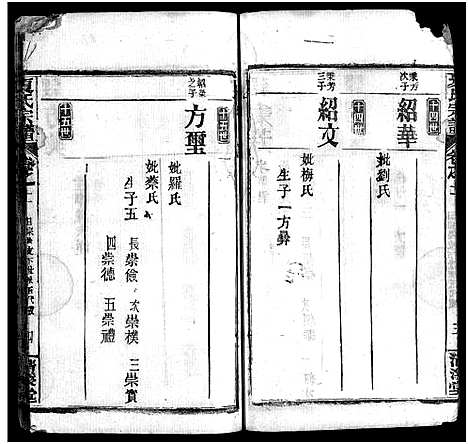 十四世
秉芳次子
紹華
妣劉氏
十四世
秉芳三子
紹文
妣梅氏
生子一方彝
十五世
紹榮之子
方璽
妣羅氏
妣蔡氏
生子五
長崇儉 次崇樸 三崇實
四崇德 五崇禮
氏宗譜